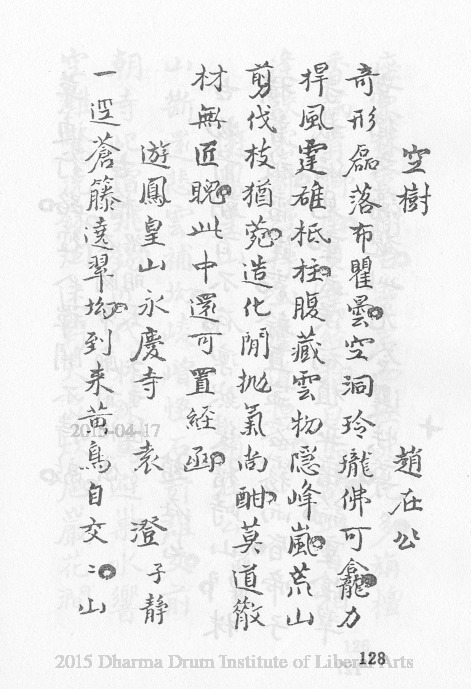 空樹 趙在公
奇形磊落布瞿曇。空洞玲瓏佛可龕。力
捍風霆碓柢柱。腹藏雲物隱峰嵐。荒山
剪伐枝猶菀。造化閒拋氣尚酣。莫道散
材無匠睨。此中還可置經函。
遊鳳皇山永慶寺 袁澄子靜
一逕蒼藤遶翠坳。到来黃鳥自交〻。山
2015-04-17
128
2015 Dharma Drum Institute of Liberal Arts